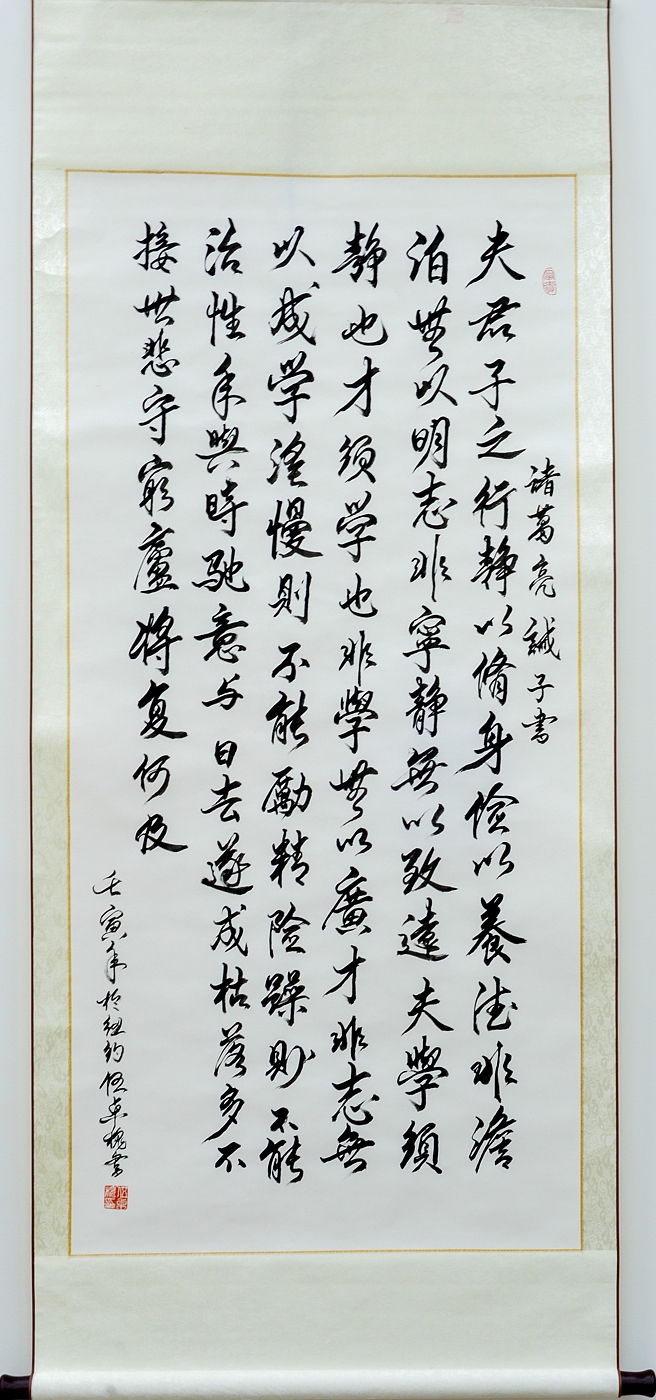 諸葛亮誡子書
夫君子之行静以脩身儉以養德非澹
泊無以明志非寧靜無以致遠夫學須
静也才须学也非學無以廣才非志無
以成学淫慢則不能勵精险躁則不能
治性年與時馳意与日去遂成枯落多不
接世悲守窮廬將复何及
壬寅年於纽约伍卓槐書